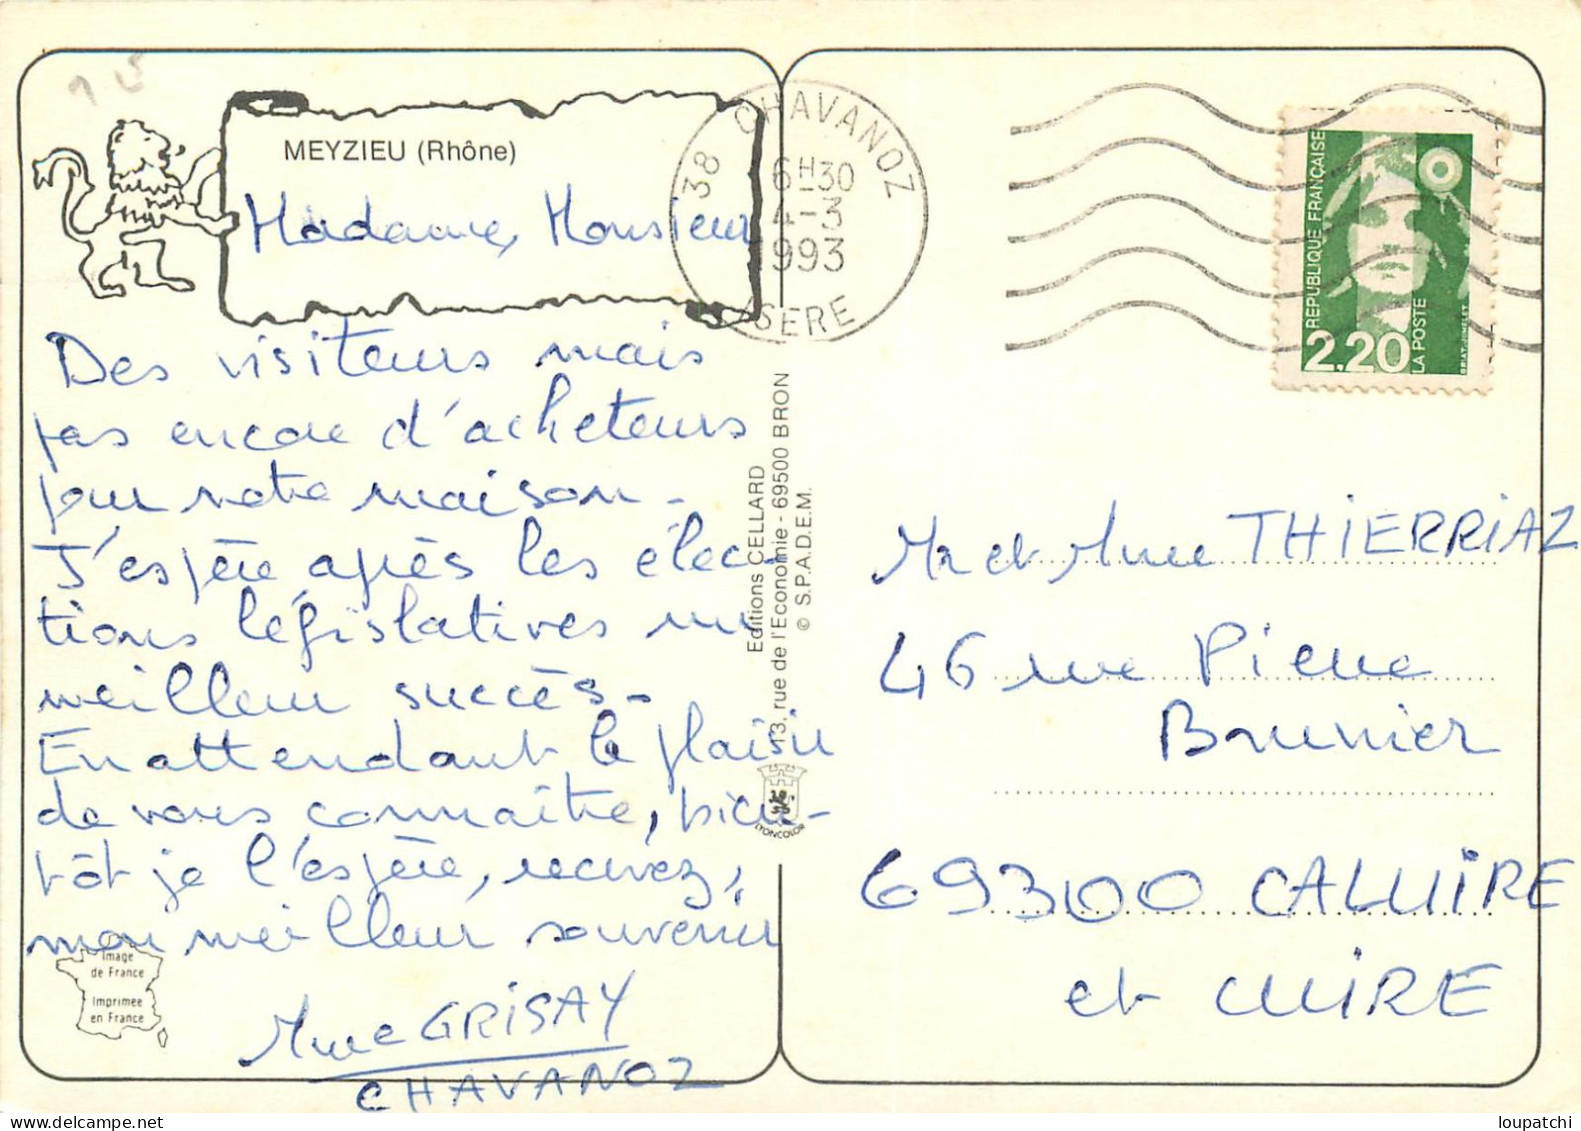 MEYZIEU (Rhône)
Madame, Monsieur
Des visiteurs mais
pas encore d'acheteurs
pour notre maison.
J'espère après les élec-
tions législatives un
meilleur succès.
En attendant le plaisir
de vous connaître, bien-
tôt je l'espère, recevez,
mon meilleur souvenir
Mme GRISAY
CHAVANOZ
Image
de France
Imprimée
en France
Editions CELLARD
13, rue de l'Economie - 69500 BRON
© S.P.A.D.E.M.
LYONCOLOR
38 CHAVANOZ
6H30
4-3
1993
ISERE
REPUBLIQUE FRANÇAISE
2,20
LA POSTE
BRIAT-JUMELET
Mr et Mme THIERRIAZ
46 rue Pierre
Brunier
69300 CALUIRE
et CUIRE
www.loupatchi